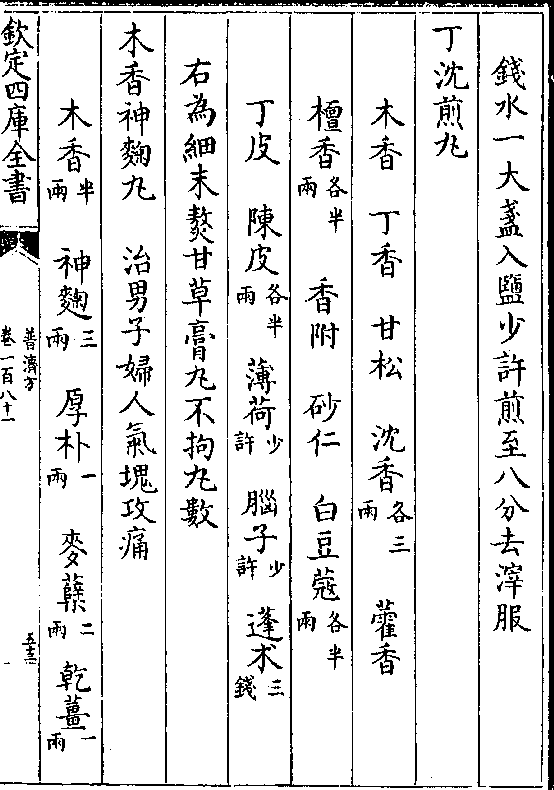 錢水一大盞入鹽少許煎至八分去滓服
丁沈煎丸
木香 丁香 甘松 沈香各三兩 藿香
檀香各半兩 香附 砂仁 白豆蔻各半兩
丁皮 陳皮各半兩 薄荷少許 腦子少許 蓬朮三錢
右為細末熬甘草膏丸不拘丸數
木香神麴丸 治男子婦人氣塊攻痛
木香半兩 神麴三兩 厚朴一兩 麥蘖二兩 乾薑一兩
欽定四庫全書
普濟方
卷一百八十一